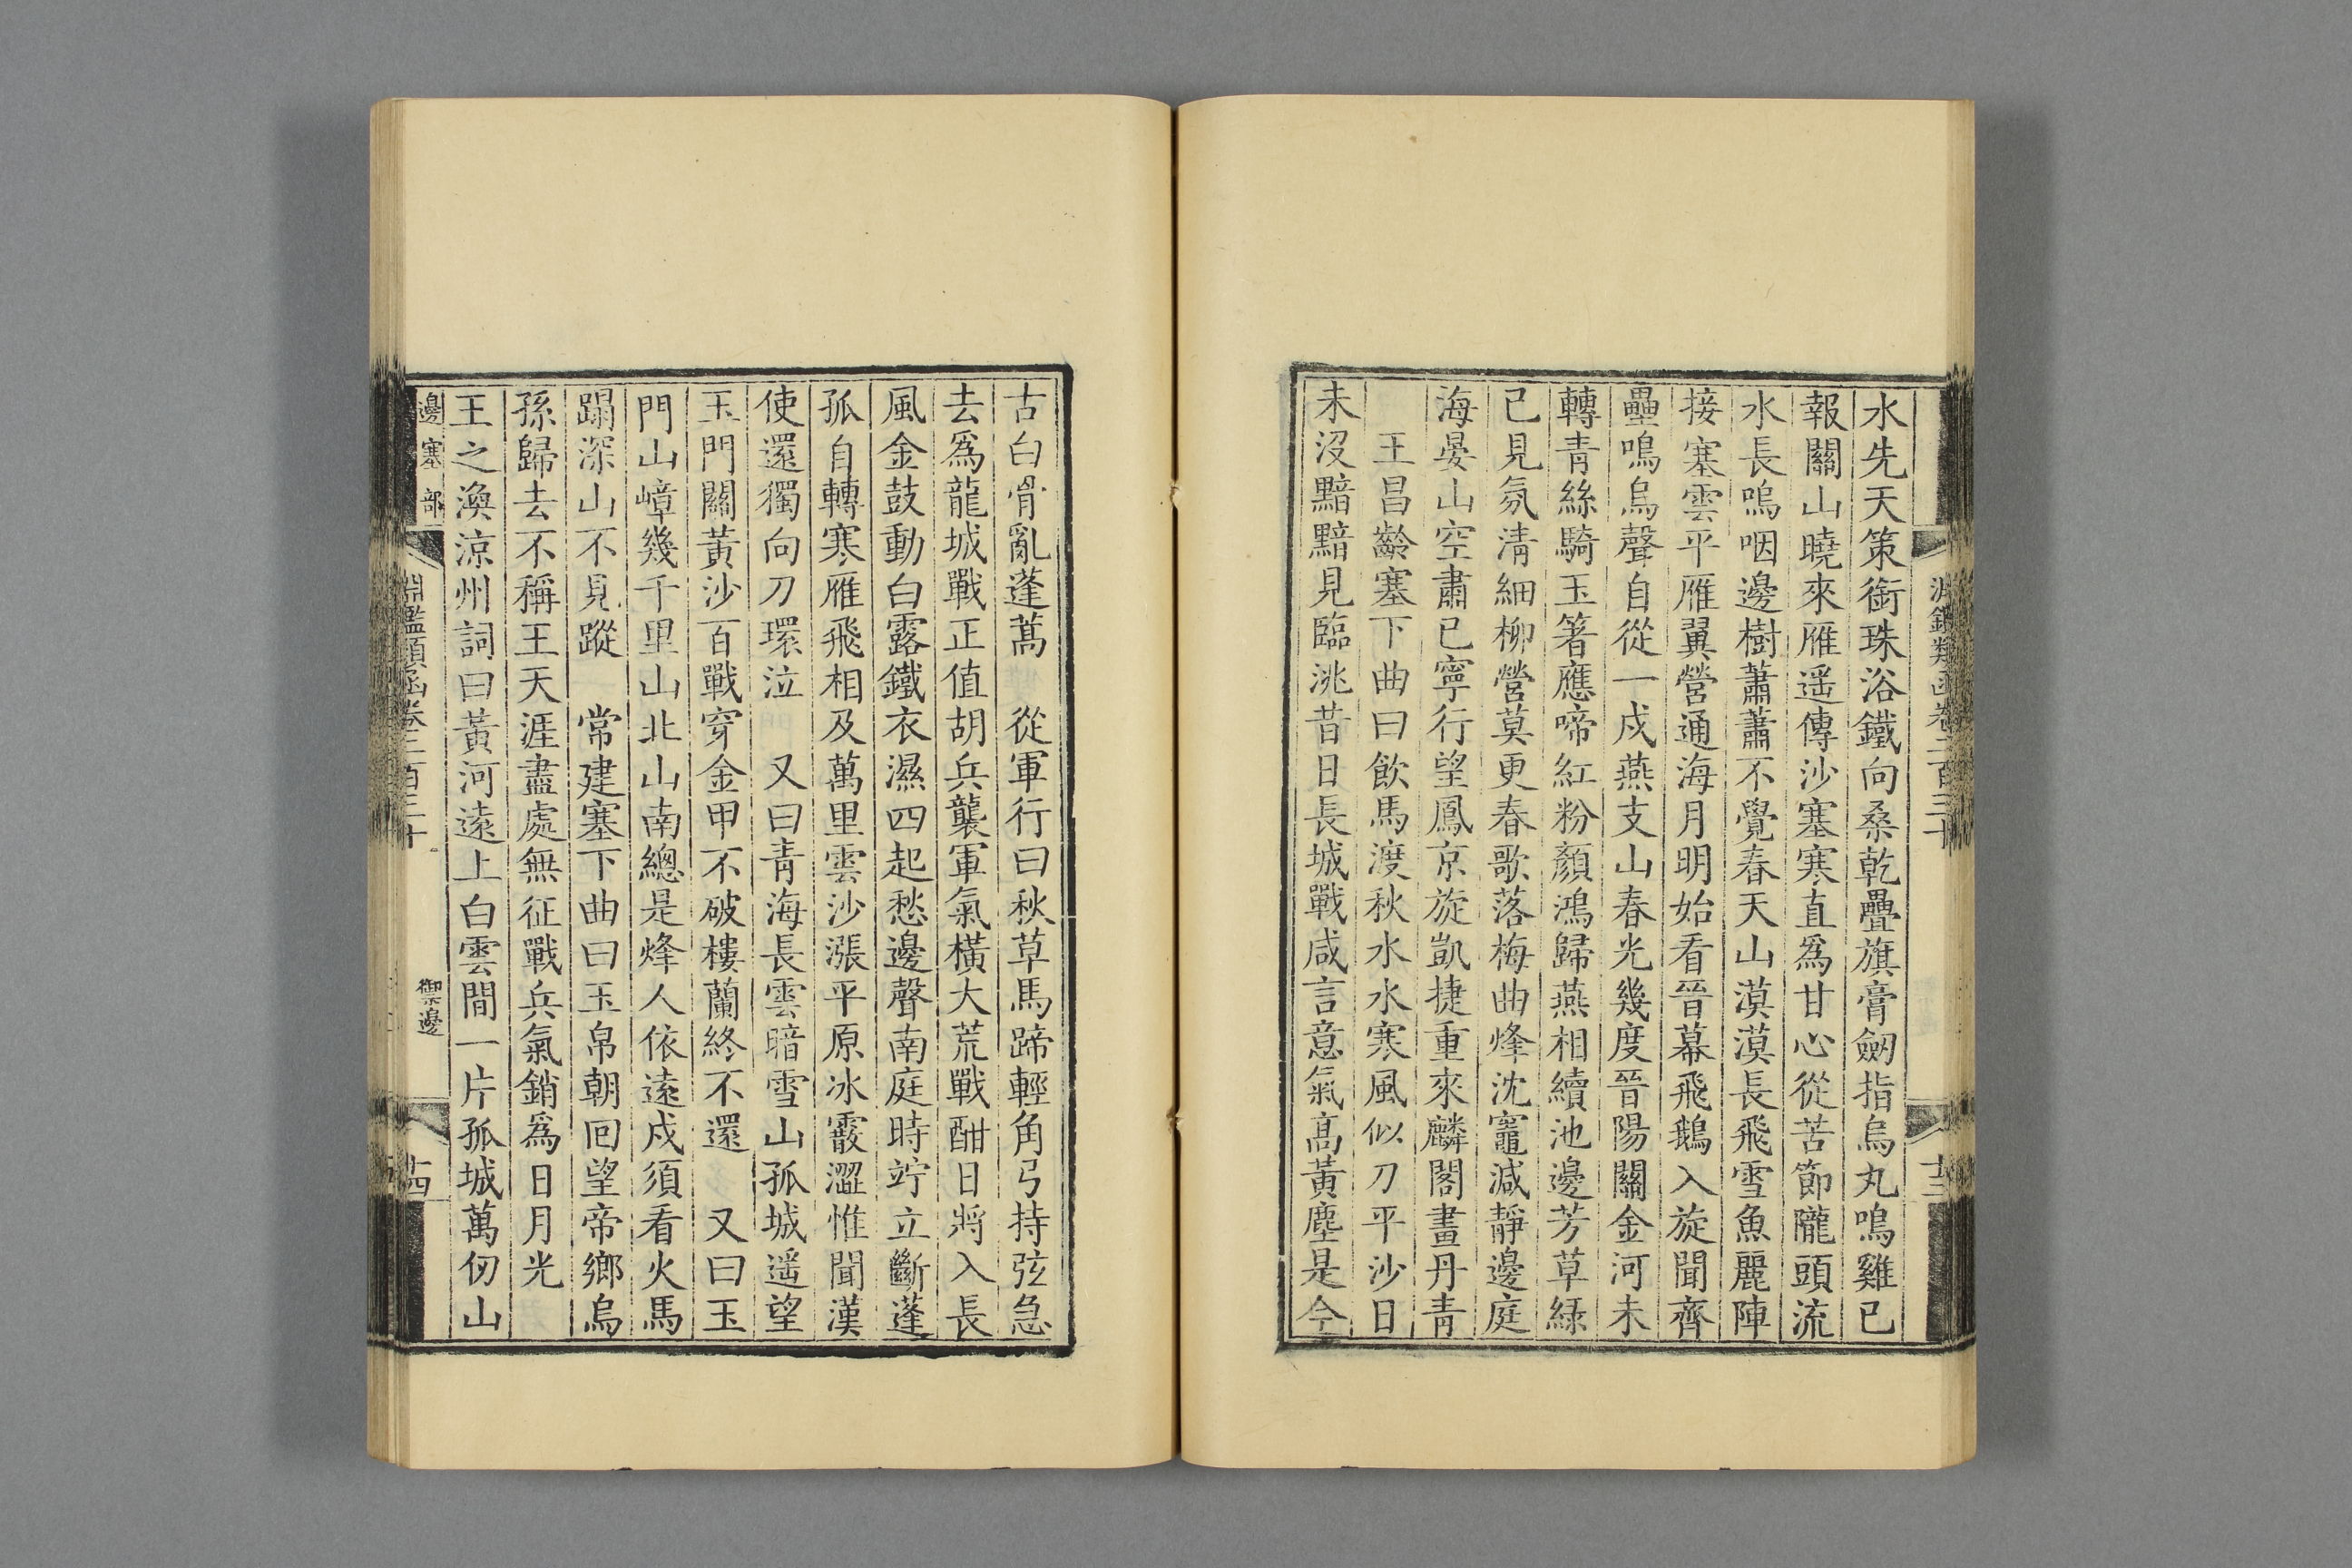 水先天策銜珠浴鐵向桑乾疊旗膏劒指烏丸鳴雞已
報關山曉來雁遥傳沙塞寒直爲甘心從苦節隴頭流
水長嗚咽邊樹蕭蕭不覺春天山漠漠長飛雪魚麗陣
接塞雲平雁翼營通海月明始看晉幕飛鵝入旋聞齊
壘鳴烏聲自從一戍燕支山春光幾度晉陽關金河未
轉青絲騎玉箸應啼紅粉顏鴻歸燕相續池邊芳草緑
已見氛清細柳營莫更春歌落梅曲烽沈竈減靜邊庭
海晏山空肅已寧行望鳳京旋凱捷重來麟閣畫丹青
王昌齡塞下曲曰飲馬渡秋水水寒風似刀平沙日
未沒黯黯見臨洮昔日長城戰咸言意氣高黃塵是今
古白骨亂蓬蒿 從軍行曰秋草馬蹄輕角弓持弦急
去爲龍城戰正值胡兵襲軍氣橫大荒戰酣日將入長
風金鼓動白露鐵衣濕四起愁邊聲南庭時竚立斷蓬
孤自轉寒雁飛相及萬里雲沙漲平原冰霰澀惟聞漢
使還獨向刀環泣 又曰青海長雲暗雪山孤城遥望
玉門關黃沙百戰穿金甲不破樓蘭終不還 又曰玉
門山嶂幾千里山北山南總是烽人依遠戍須看火馬
蹋深山不見蹤 常建塞下曲曰玉帛朝回望帝鄉烏
孫歸去不稱王天涯盡處無征戰兵氣銷爲日月光
王之渙涼州詞曰黃河遠上白雲間一片孤城萬仞山
邊塞部
淵鑑類函卷二百三十
禦邊
十四